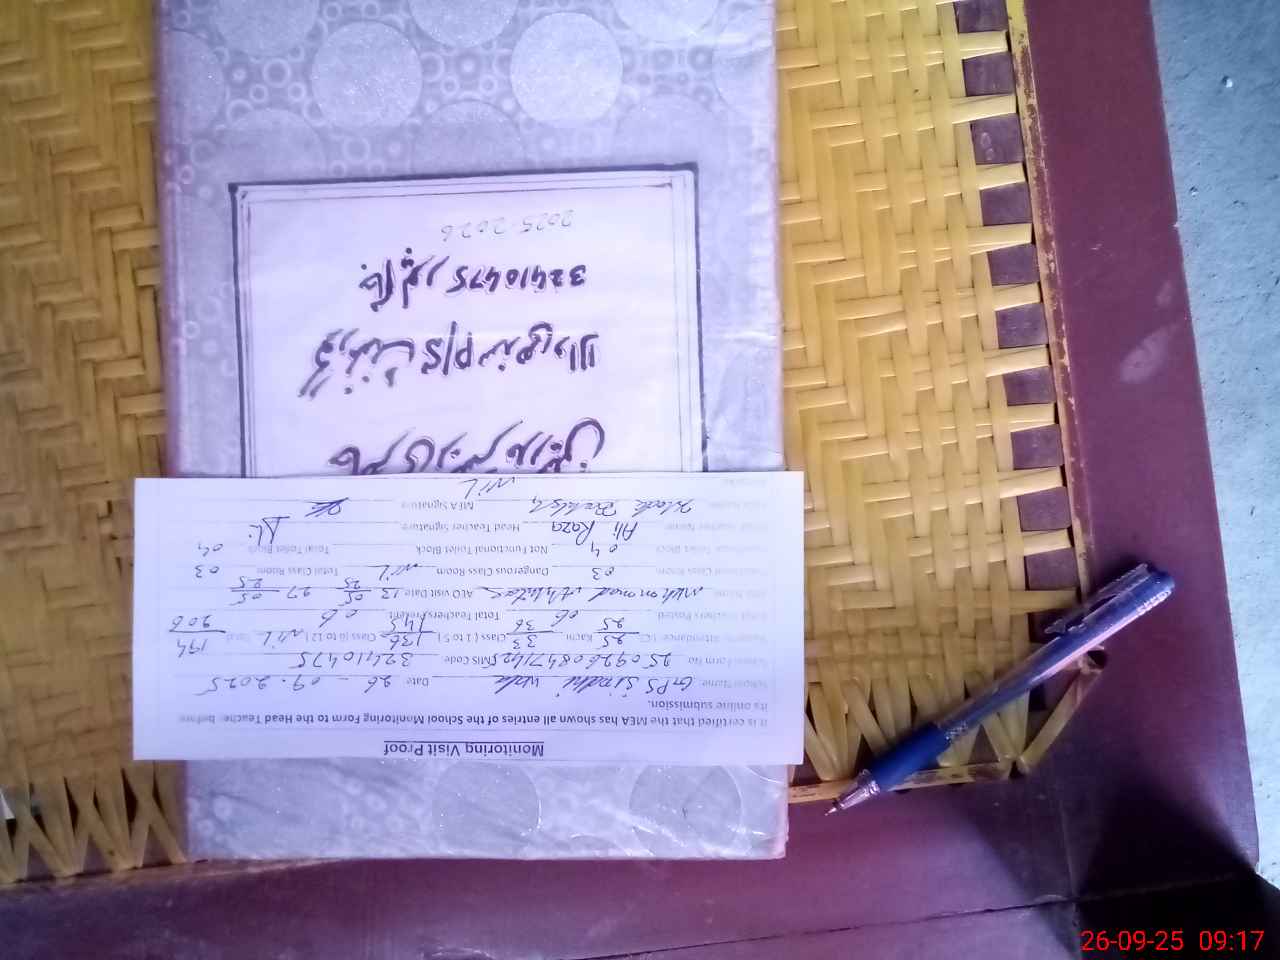 Monitoring Visit Proof
It is certified that the MEA has shown all entries of the School Monitoring Form to the Head Teacher before
its online submission.
School Name: GPS Sindhi Wala Date 26 - 09 - 2025
School Form No EMIS Code: 32410475
Attendance: 25/25 Kachi 33/36 Class (1 to 5) 136/145 Class (6 to 12) NIL Total 194/206
Teachers Posted 06 Total Teachers Present 06
Muhammad AEO visit Date 13 05/25 27 05/25
Class Room 03 Dangerous Class Room NIL Total Class Room 03
Toilet Block 04 Not Functional Toilet Block Total Toilet Block 04
Head Teacher Name Ali Raza Head Teacher Signature
MEA Signature
NIL
گورنمنٹ P/S سندھی والا
32410475
2025-2026
26-09-25 09:17